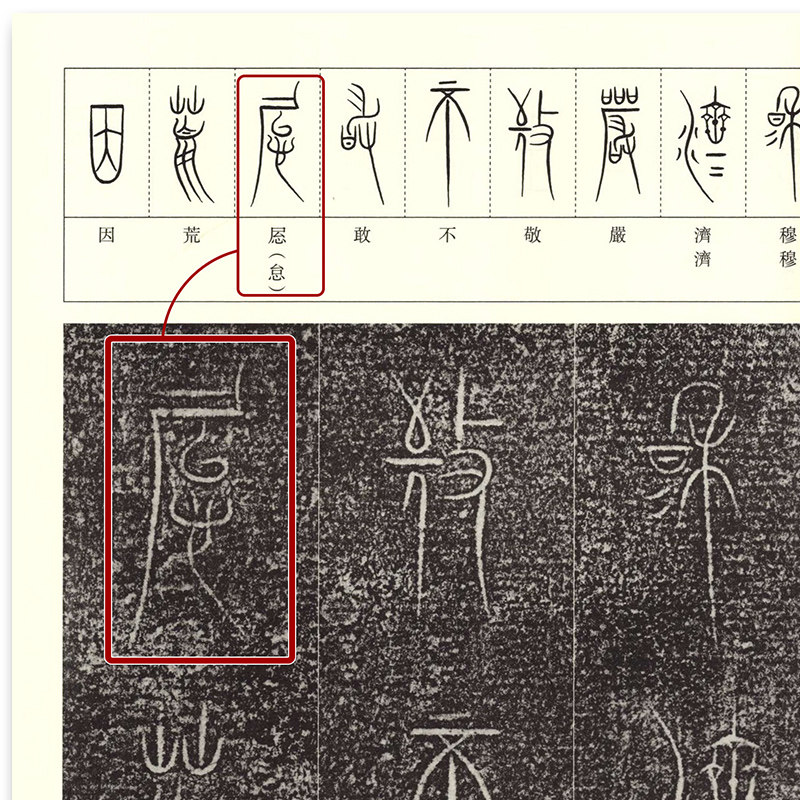 穆穆
濟濟
嚴
敬
不
敢
(怠)
荒
因